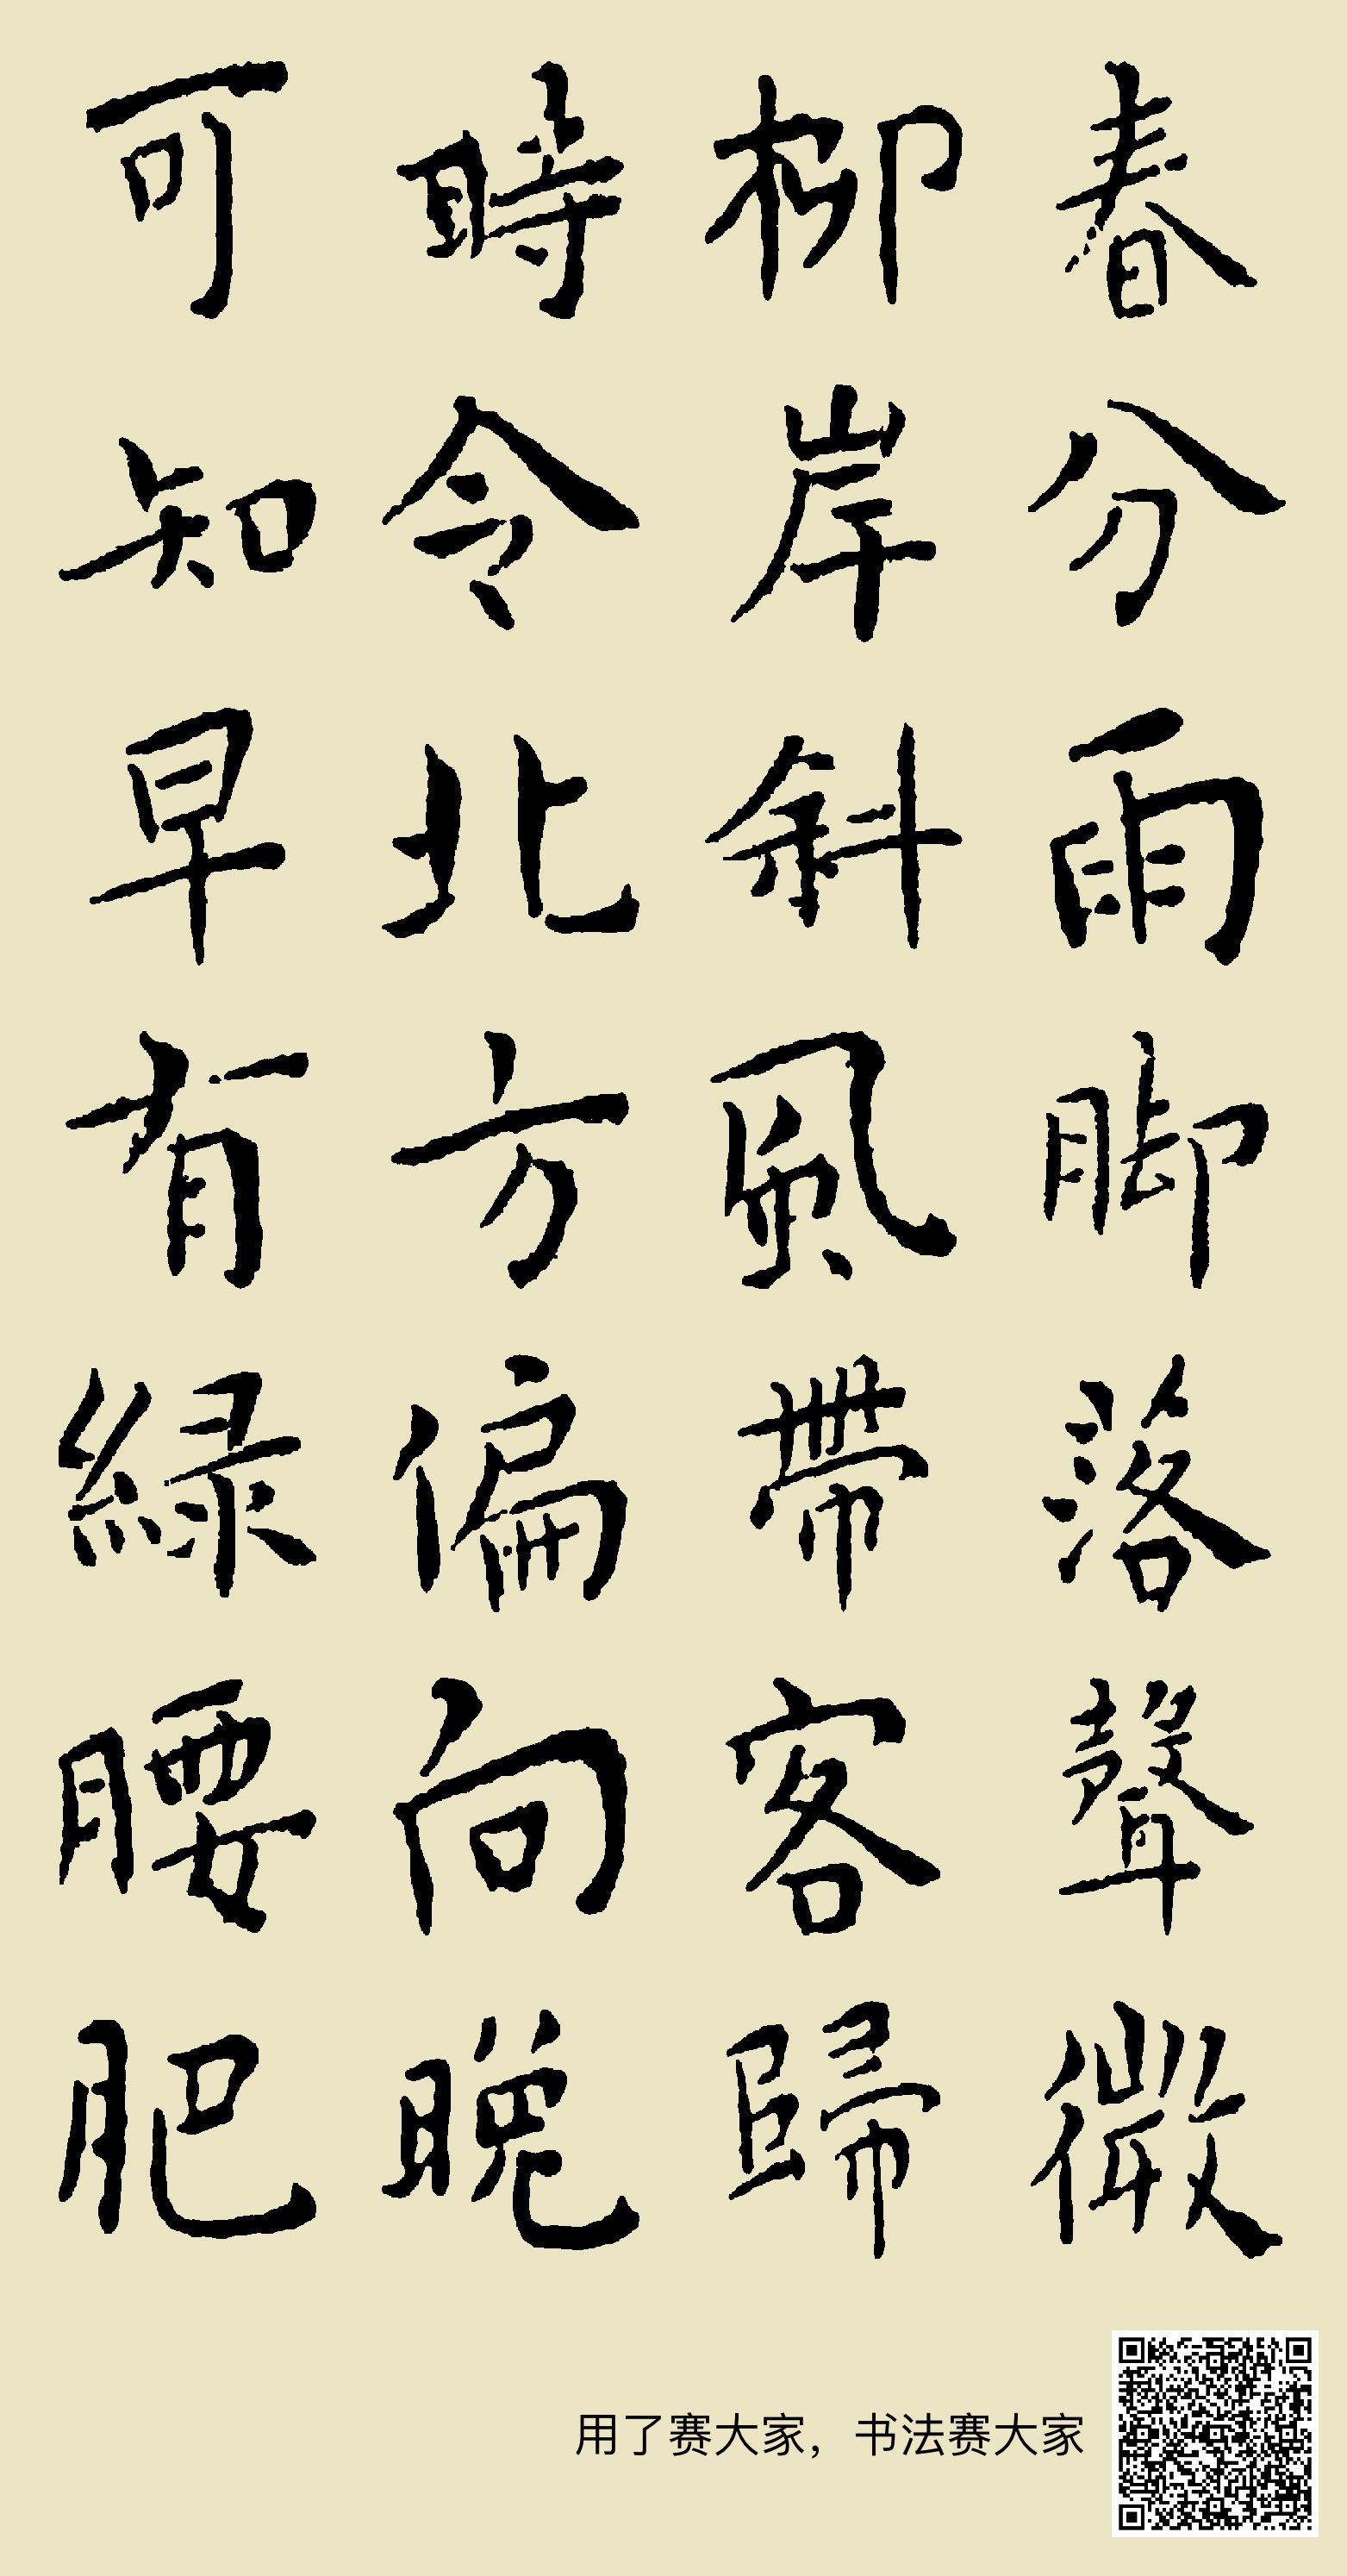 春分雨脚落聲微
柳岸斜風帶客歸
時令北方偏向晚
可知早有綠腰肥
用了赛大家，书法赛大家